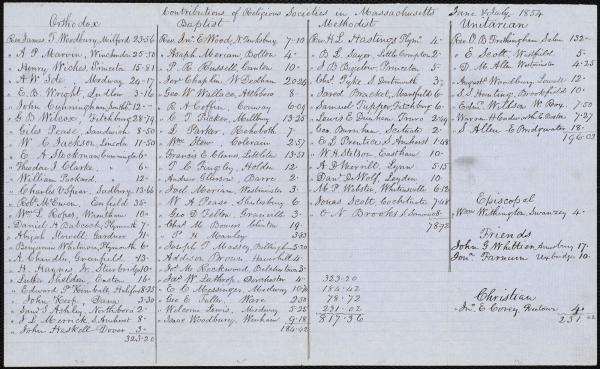 Contributions of Religious Societies in Massachusetts
June & July 1854
Orthodox
Rev James T. Woodbury, Milford 23-56
" A P Marvin, Winchendon 25-50
" Henry Wickes, Princeton 15-81
" A W Ide Medway 24-17
" E. B. Wright, Ludlow 3-16
" John Cunningham, 12-
" G B Wilcox, Fitchburg 28-74
" Giles Pease, Sandwich 8-50
" W C Jackson, Lincoln 11-50
" E A Stockman Cummington 6-
" Theodore J Clarke, " 6-
" William Packard, " 12-
" Charles V Spear, Sudbury, 13-66
" Robt McEwen, Enfield 35-
" Wm L Ropes, Wrentham 10-
" Daniel H Babcock, Plymouth 7-
" Abijah Stowell Gardner 11-
" Benjamin Whitmore, Plymouth 6-
" A. Chandler, Greenfield, 13-
" H. Haynes Jr. Sturbridge 10-
" Luther Sheldon, Easton 16-
" Edward P Kimball, Halifax 8-25
" John Keep, Dana 3-30
" Saml S Ashley, Northboro 2-
" J L Merrick, S. Amherst 8-
" John Haskell Dover 3-
323-20
Baptist
Rev Jno E Wood, Tewksbury 7-10
" Joseph Moriam Bolton 4-
" P R Russell, Canton 10-
" Chaplin, W Dedham 20-24
" Geo W Wallace, Attleboro 8-
" R A Coffin, Conway 6-09
" C T Tucker, Millbury 13-25
" L Parker, Rehoboth 7-
" Wm Stow, Colerain 2-57
" Francis E Cleaves, Littleton 13-51
" T C Tingley, Holden 12-
" Andrew Ellerson, Barre 2-
" Joel Moriam, Westminster 3-
" W A Pease, Shutesbury 6-
" Geo D Felton, Granville 3-
" Chas M Bowers Clinton 19-
" P H Manley 3-63
" Joseph T Massey, Bellingham 5-20
" Addison Brown Haverhill 4-
" Jos M Rockwood, Belchertown 3-
" Jas W Lathrop, Dorchester 4-
" E C Messenger, Medway 10-76
" Geo E Fuller, Ware 2-50
" Welcome Lewis, Medway 5-25
" Isaac Woodbury, Wenham 9-18
184-42
Methodist
Rev H L Hastings Plym 4-
" B L Sayer, Little Compton 2-
" S B Bigelow Princeton 5-
" Chas Pyke S Dartmouth 3-
" Jared Bracket, Marshfield 6-
" Samuel Tupper Fitchburg 6-
" Lewis E Dunham Truro 2-49
" Geo. Burnham Scituate 2-
" E L Prentice S Amherst 1-48
" W H Stetson Eastham 10-
" A D Merrill Lynn 5-15
" Danl DeWolf Leyden 10-
" M P Webster, Whitinsville 6-12
" Jonas Scott Cochituate 7-48
" O N Brooks 8-
78-72
323-20
184-42
78-72
231-02
817-36
Unitarian
Rev O B Frothingham Salem 132-
" E Scott Westfield 5-
" D M Allen Westminster 4-25
" August Woodbury, Lowell 12-
" S S Hunting, Brookfield 10-
" Edm. Willson W. Rox. 7-50
" Warren H Cudworth E Boston 7-27
" S Allen E Bridgwater 18-
196-02
Episcopal
Wm Withington, Swanzey 4-
Friends
John G Whittier, Amesbury 17-
Jon Farnum Uxbridge 10-
Christian
" Jn. E Corey, 4-
231 02